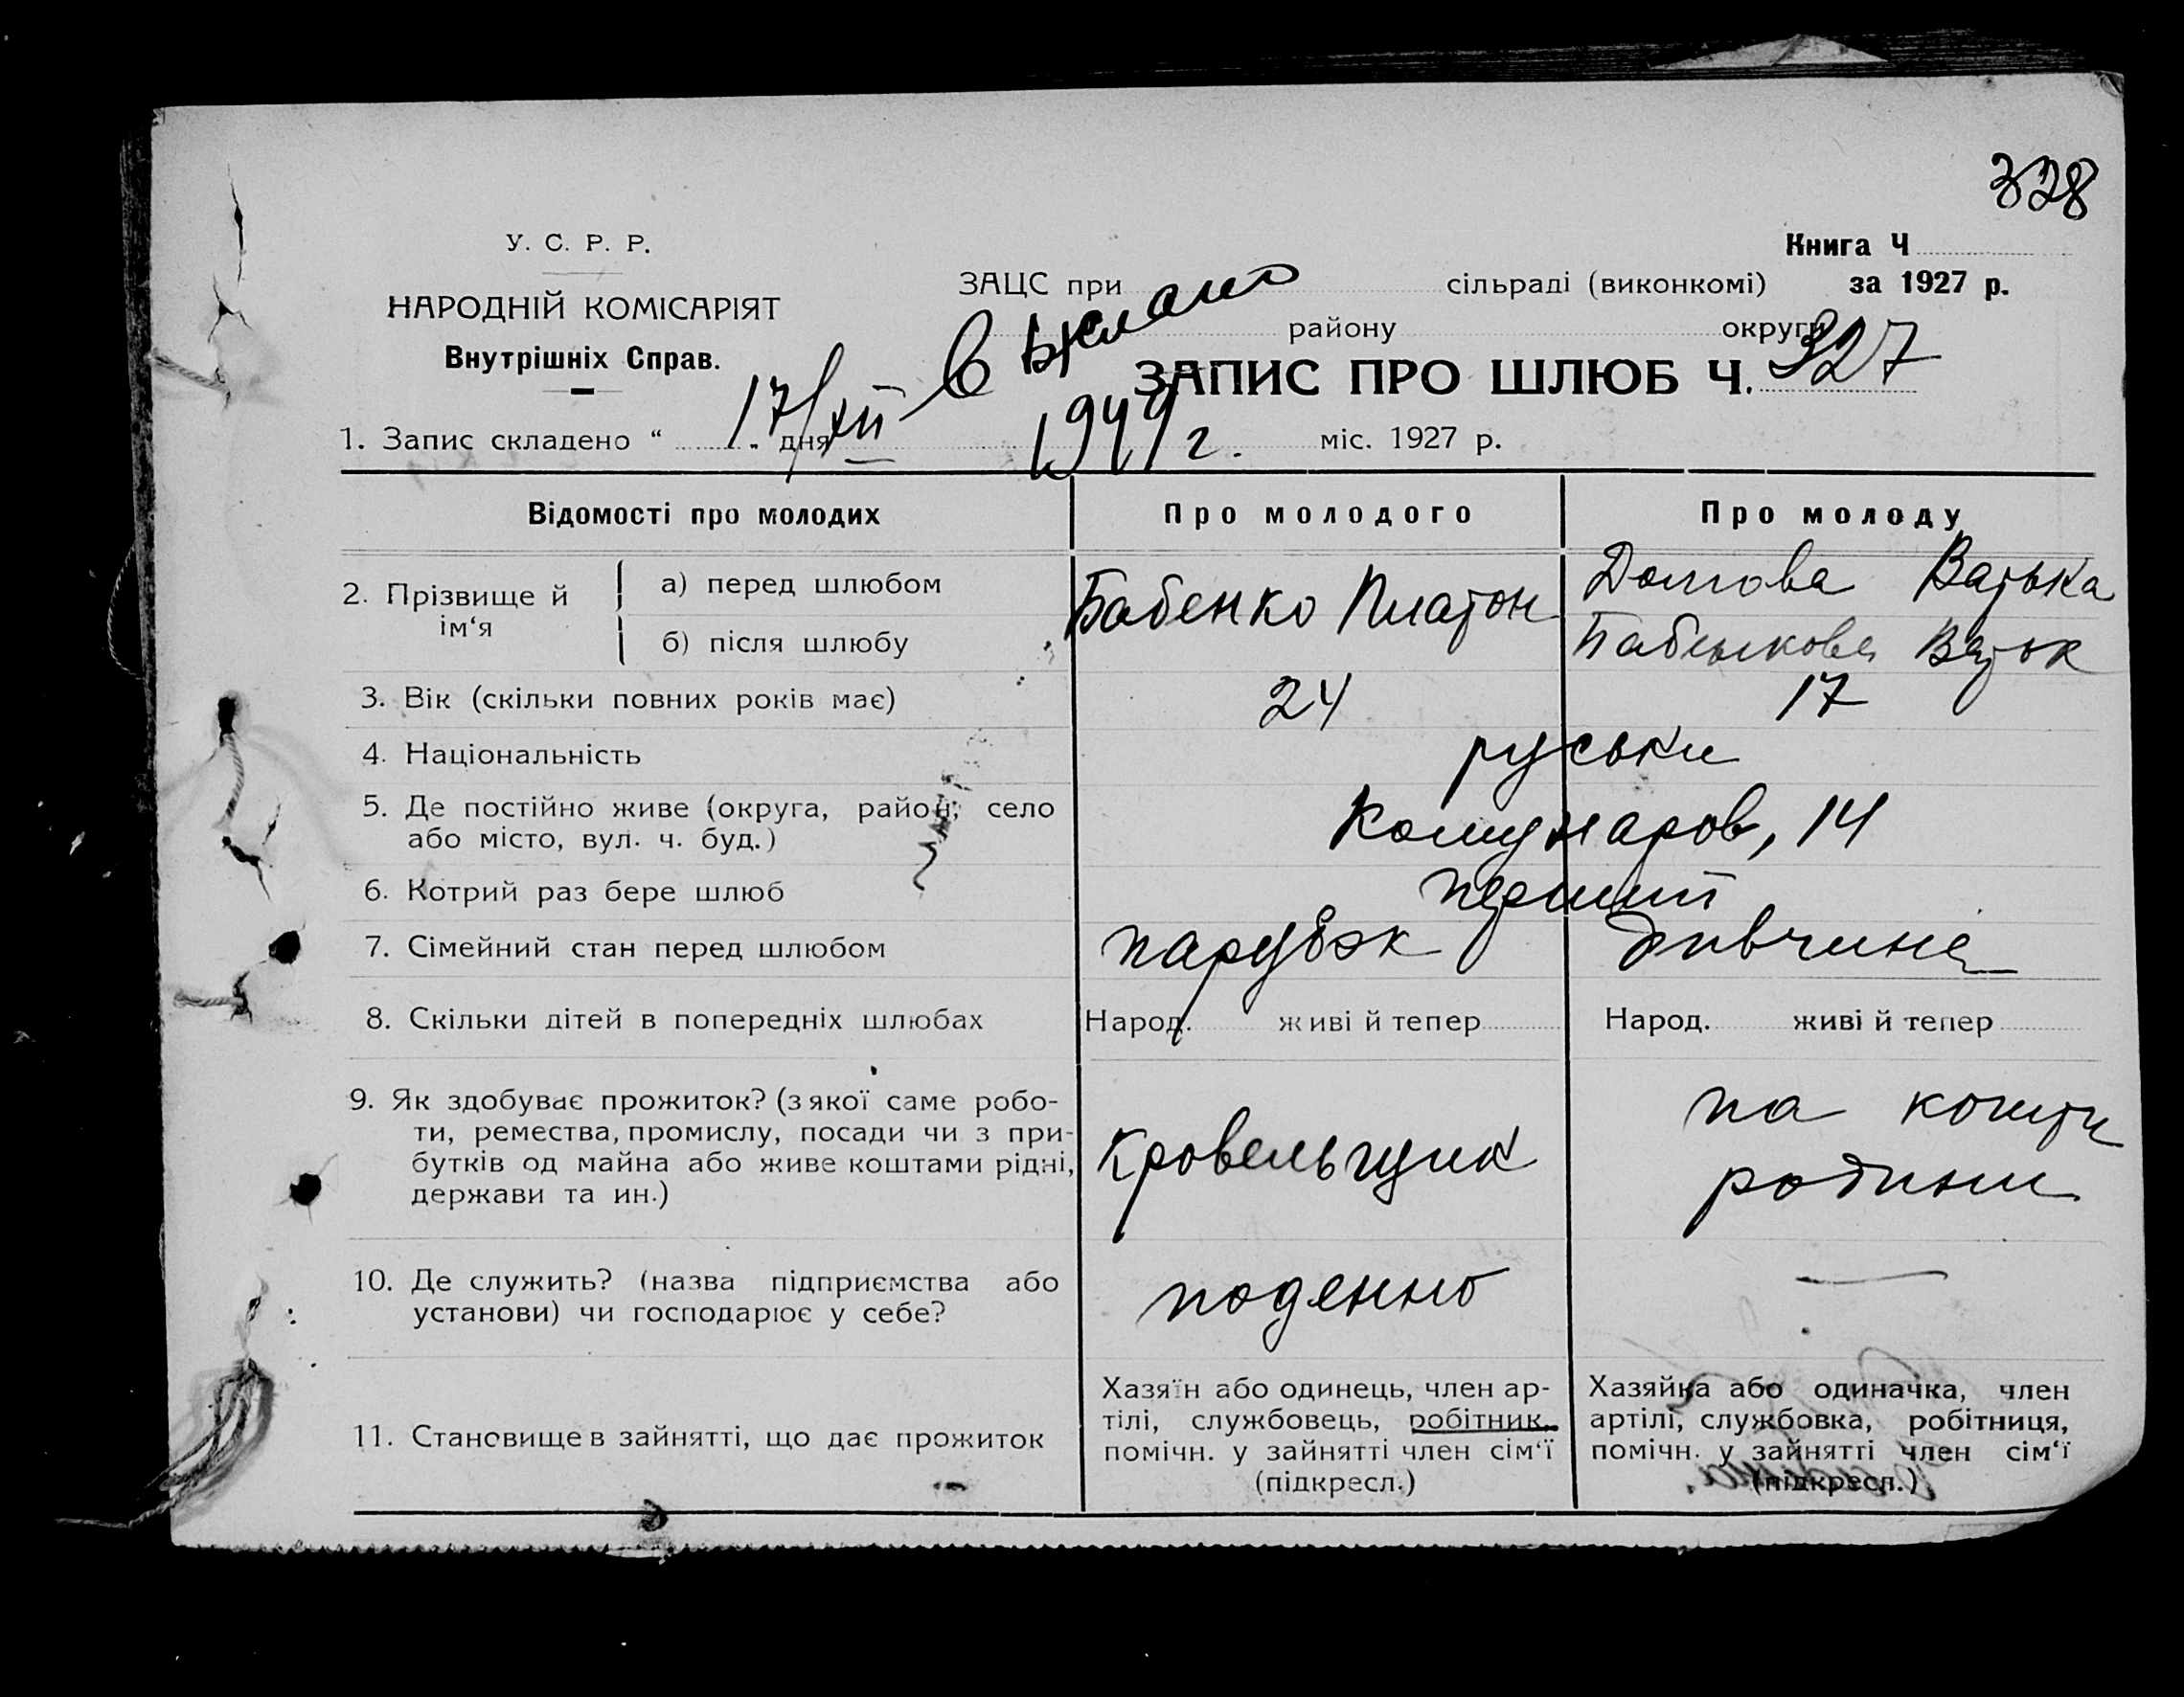 328
У. С. Р. Р.
Книга Ч
НАРОДНІЙ КОМІСАРІЯТ
ЗАЦС при сільраді (виконкомі) за 1927 р.
Внутрішніх Справ.
району округи
ЗАПИС ПРО ШЛЮБ Ч. 327
17/XII 1944 г.
1. Запис складено “ „ дня міс. 1927 р.
Відомості про молодих Про молодого Про молоду
2. Прізвище й ім‘я
а) перед шлюбом Бабенко Платон Долгова
б) після шлюбу
3. Вік (скільки повних років має) 24 17
4. Національність руськи
5. Де постійно живе (округа, район, село
або місто, вул. ч. буд.) Комунаров, 14
6. Котрий раз бере шлюб перший
7. Сімейний стан перед шлюбом парубок дивчина
8. Скільки дітей в попередніх шлюбах Народ. живі й тепер Народ. живі й тепер
9. Як здобуває прожиток? (з якої саме робо-
ти, ремества, промислу, посади чи з при-
бутків од майна або живе коштами рідні,
держави та ин.)
Кровельщик
на кошти
родини
10. Де служить? (назва підприємства або
установи) чи господарює у себе?
поденно —
11. Становище в зайнятті, що дає прожиток
Хазяїн або одинець, член ар-
тілі, службовець, робітник,
помічн. у зайнятті член сім‘ї
(підкресл.)
Хазяйка або одиначка, член
артілі, службовка, робітниця,
помічн. у зайнятті член сім‘ї
(підкресл.)